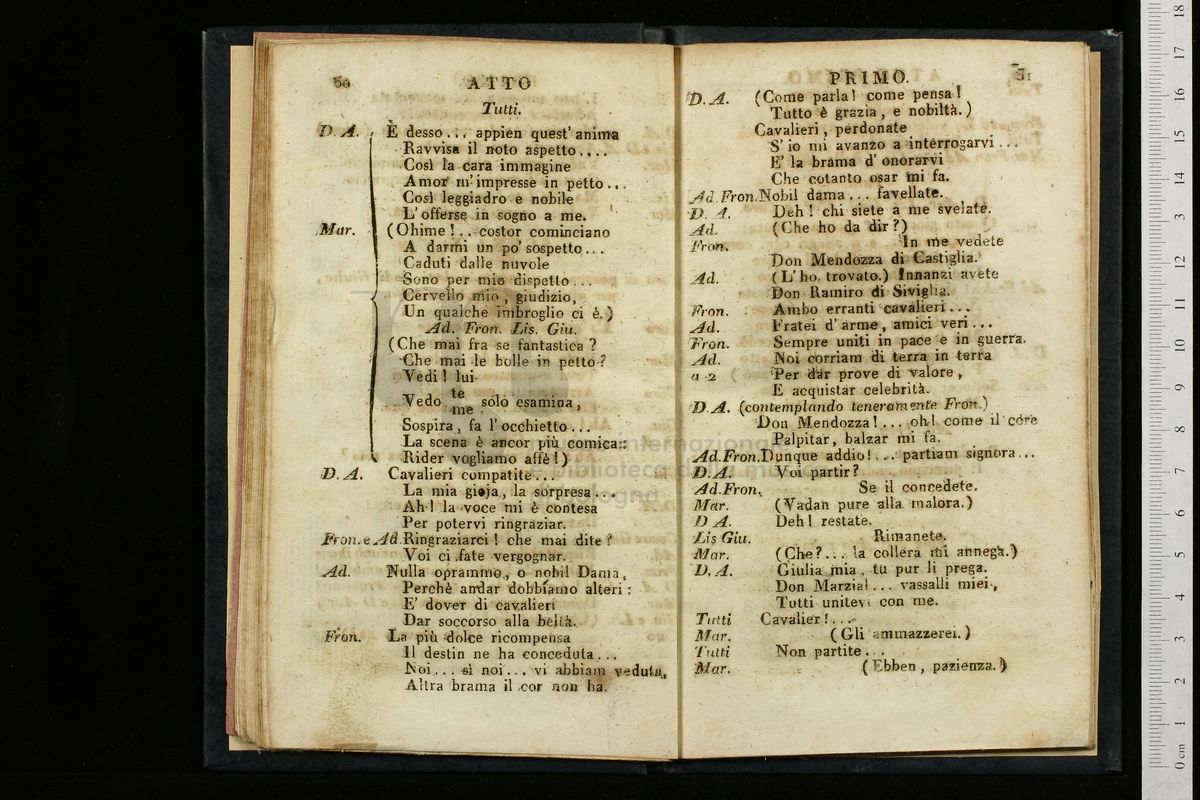 30 ATTO
Tutti.
D. A. È desso... appien quest' anima
Ravvisa il noto aspetto....
Così la cara immagine
Amor m' impresse in petto...
Così leggiadro e nobile
L' offerse in sogno a me.
Mar. (Ohime!.. costor cominciano
A darmi un po' sospetto...
Caduti dalle nuvole
Sono per mio dispetto...
Cervello mio, giudizio,
Un qualche imbroglio ci è.)
Ad. Fron. Lis. Giu.
(Che mai fra se fantastica?
Che mai le bolle in petto?
Vedi! lui
Vedo te me solo esamina,
Sospira, fa l' occhietto...
La scena è ancor più comica::
Rider vogliamo affè!)
D. A. Cavalieri compatite...
La mia gioja, la sorpresa...
Ah! la voce mi è contesa
Per potervi ringraziar.
Fron. e Ad Ringraziarci! che mai dite?
Voi ci fate vergognar.
Ad. Nulla oprammo, o nobil Dama,
Perchè andar dobbiamo alteri:
E' dover di cavalieri
Dar soccorso alla beltà.
Fron. La più dolce ricompensa
Il destin ne ha conceduta...
Noi... sì noi... vi abbiam veduta,
Altra brama il cor non ha.
PRIMO. 31
D. A. (Come parla! come pensa!
Tutto è grazia, e nobiltà.)
Cavalieri, perdonate
S' io mi avanzo a interrogarvi...
E' la brama d' onorarvi
Che cotanto osar mi fa.
Ad. Fron. Nobil dama... favellate.
D. A. Deh! chi siete a me svelate.
Ad. (Che ho da dir?)
Fron. In me vedete
Don Mendozza di Castiglia.
Ad. (L' ho trovato.) Innanzi avete
Don Ramiro di Siviglia.
Fron. Ambo erranti cavalieri...
Ad. Fratei d' arme, amici veri...
Fron. Sempre uniti in pace e in guerra.
Ad. Noi corriam di terra in terra
a 2 ( Per dar prove di valore,
E acquistar celebrità.
D. A. (contemplando teneramente Fron.)
Don Mendozza!... oh! come il core
Palpitar, balzar mi fa.
Ad. Fron. Dunque addio!... partiam signora...
D. A. Voi partir?
Ad. Fron. Se il concedete.
Mar. (Vadan pure alla malora.)
D A. Deh! restate.
Lis Giu. Rimanete.
Mar. (Che?... la collera mi annega.)
D. A. Giulia mia, tu pur li prega.
Don Marzial... vassalli miei,
Tutti unitevi con me.
Tutti Cavalier!...
Mar. (Gli ammazzerei.)
Tutti Non partite...
Mar. (Ebben, pazienza.)